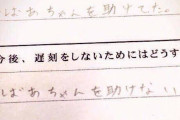 ばあちゃんを助けてた。
今後、遅刻をしないためにはどうす
ばあちゃんを助けない